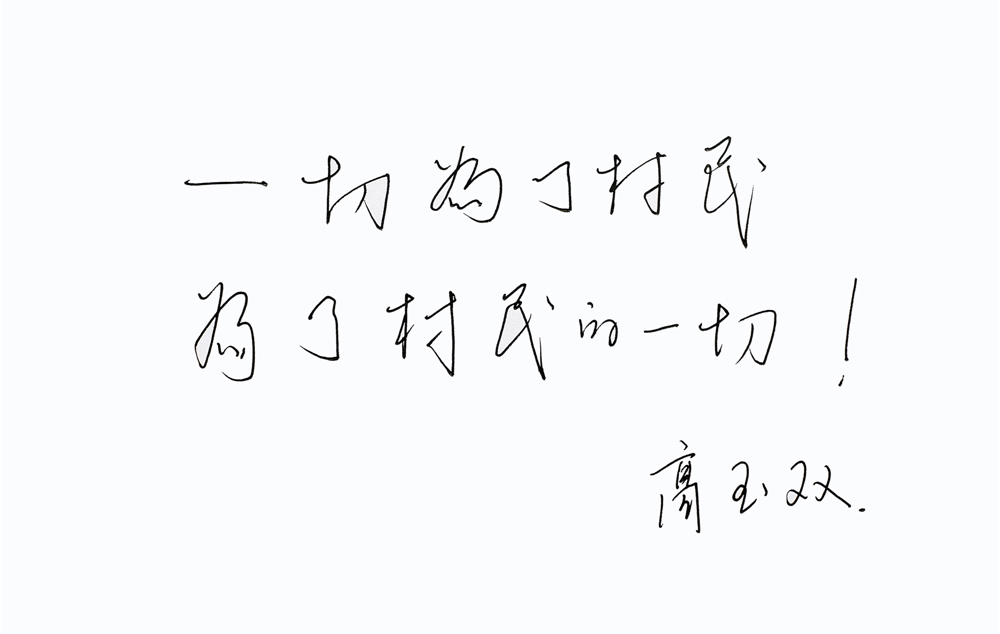 一切為了村民
為了村民的一切！
高玉双.